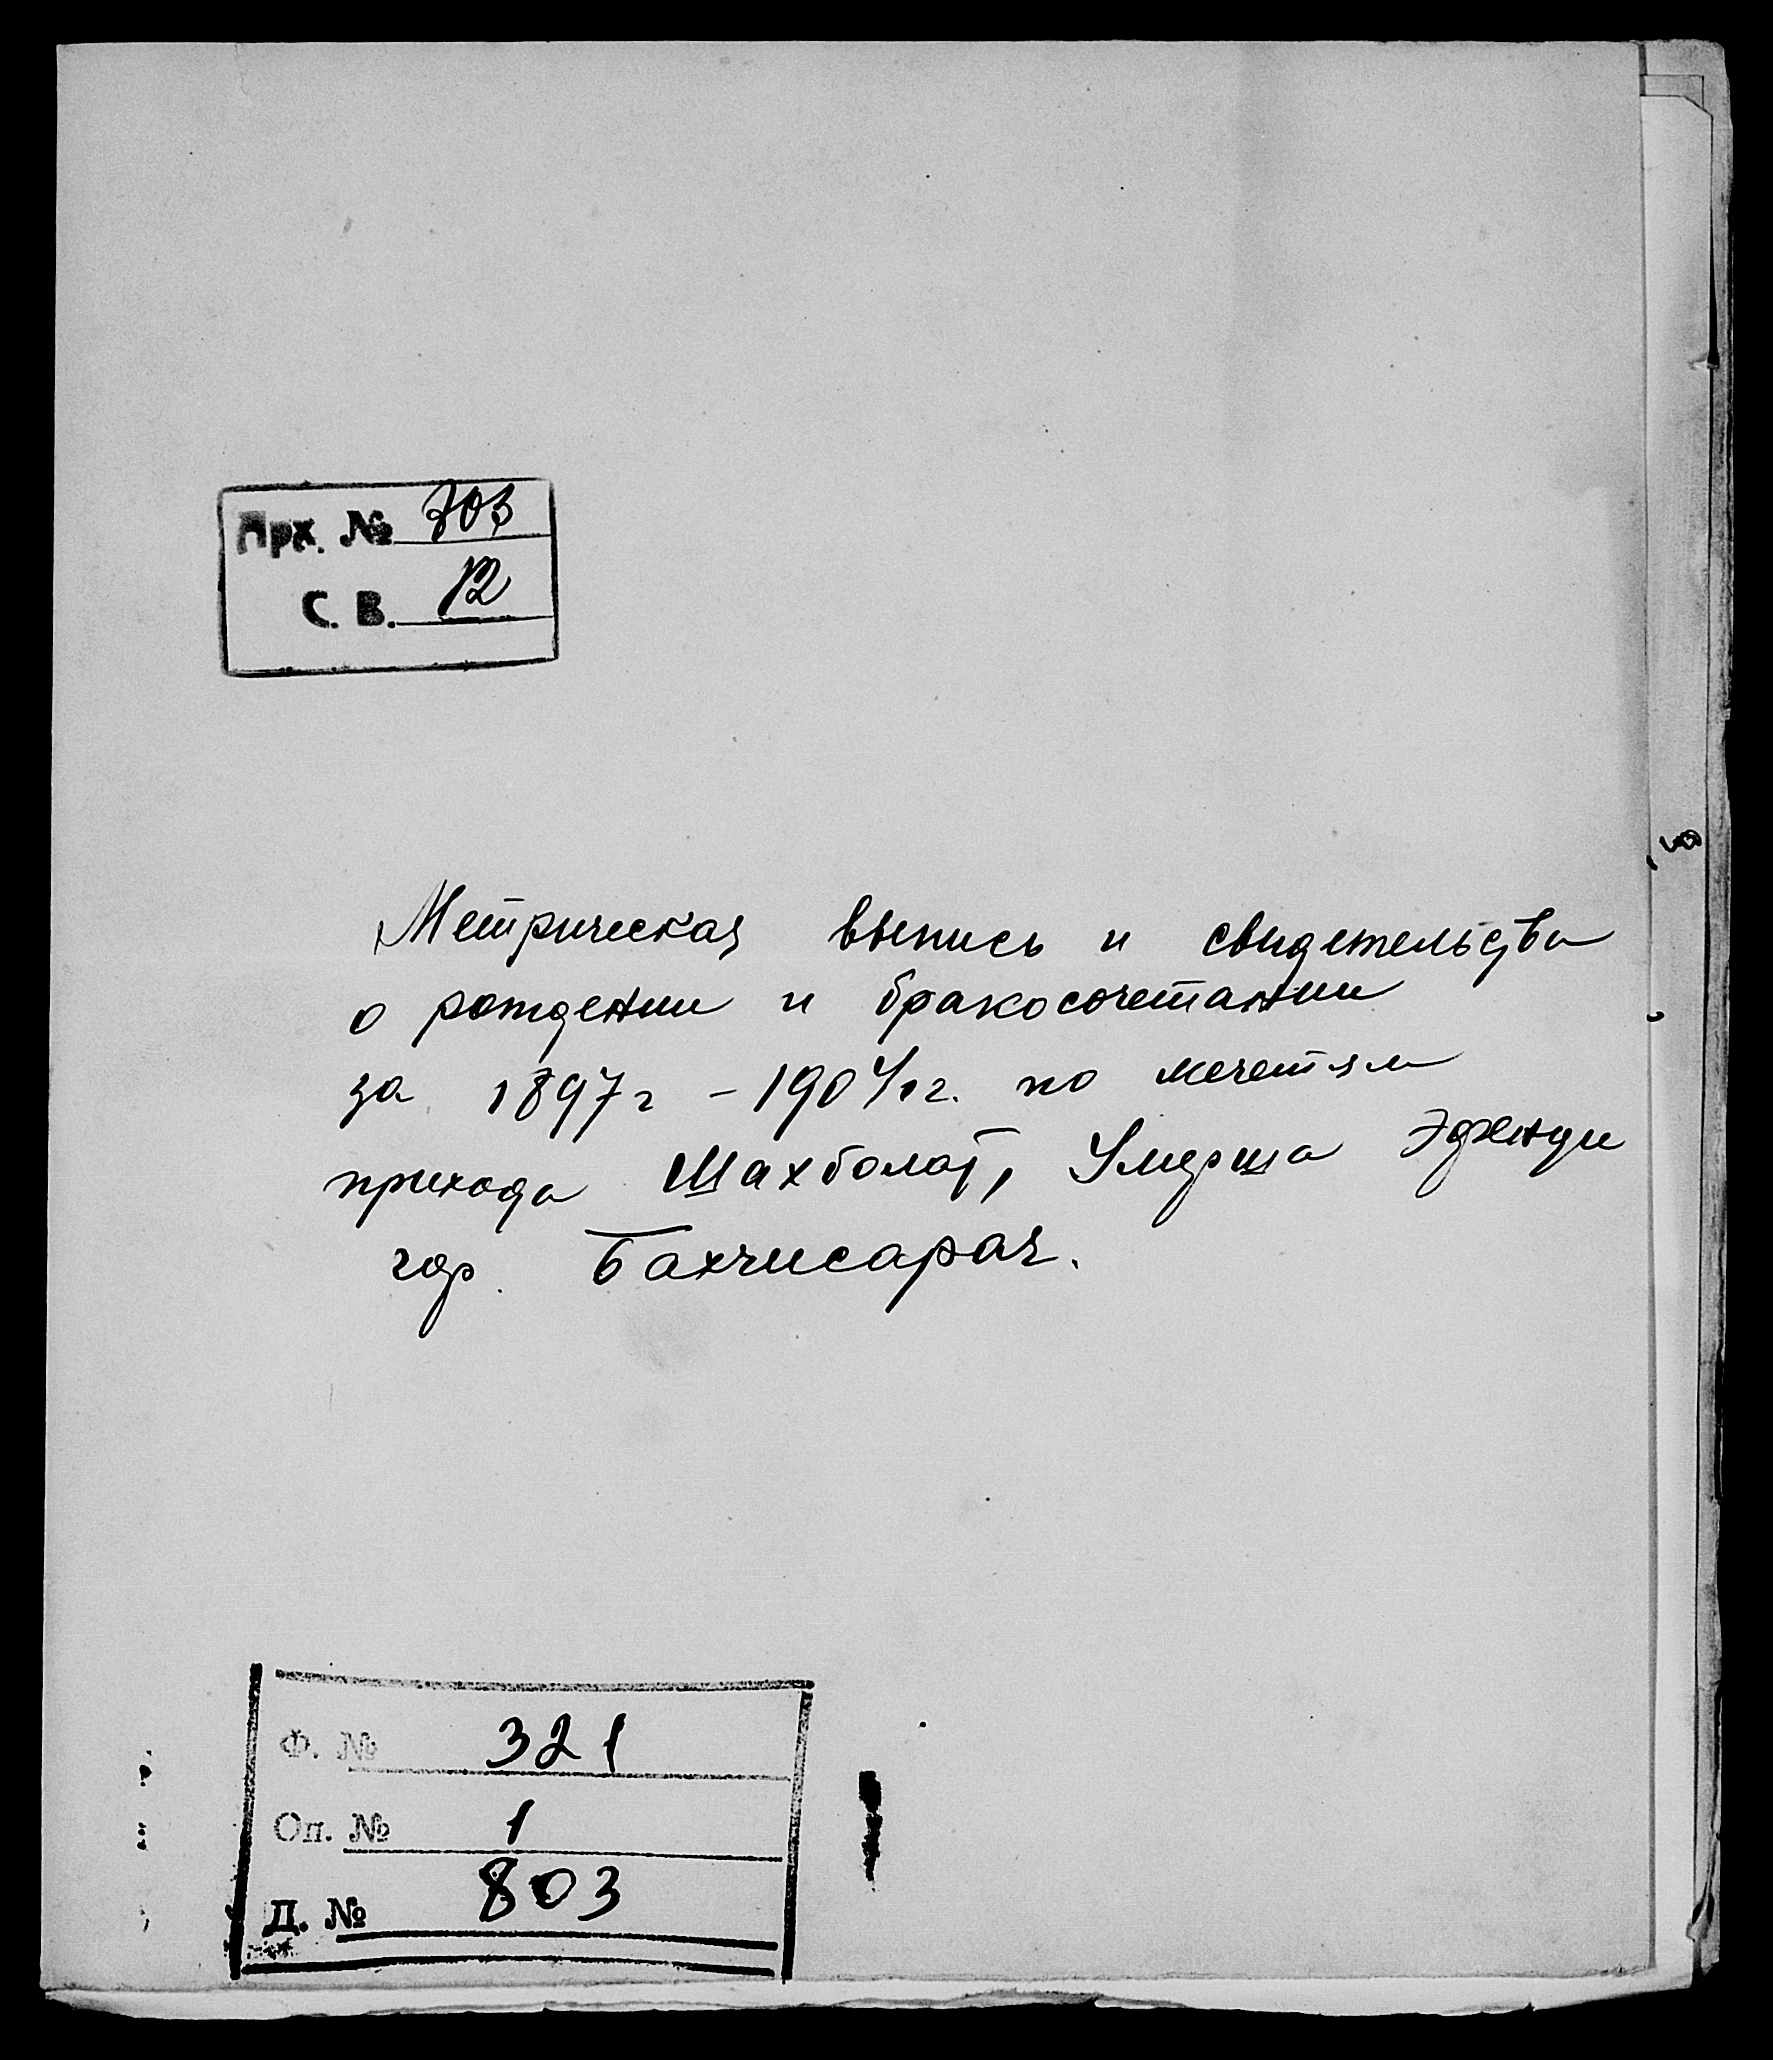 Арх. № 703
С. В. 12
Метрическая выпись и свидетельства
о рождении и бракосочетании
за 1897г - 1904г. по мечетям
прихода Шахболат, Умерша Эфенди
гор. Бахчисарая.
Ф. № 321
Оп. № 1
Д. № 803